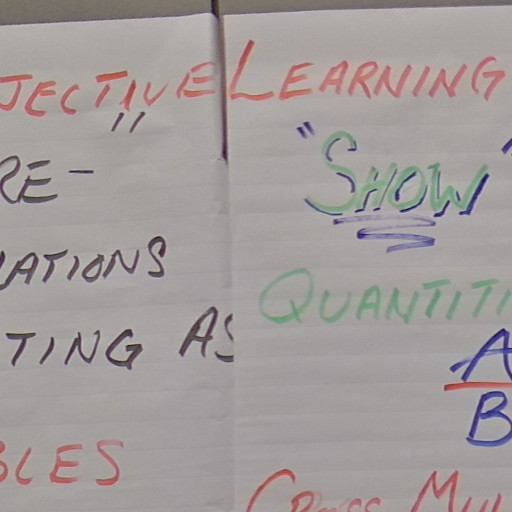 JECTIVE
"
RE-
ATIONS
TING AS
BLES
LEARNING
"SHOW"
QUANTITI
A
B
CROSS MUL